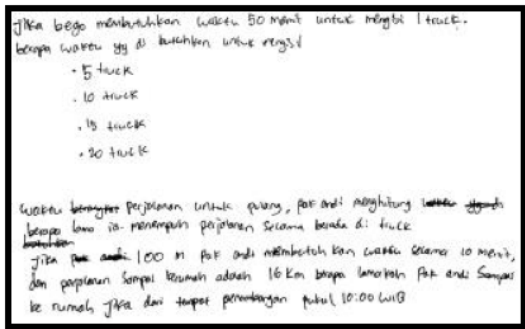 Jika bego membutuhkan waktu 50 menit untuk mengisi 1 truck.
berapa waktu yg di butuhkan untuk mengisi
- 5 truck
- 10 truck
- 15 truck
- 20 truck
waktu perjalanan untuk pulang, pak andi menghitung
berapa lama ia menempuh perjalanan selama berada di truck
Jika 100 m Pak andi membutuhkan waktu selama 10 menit,
dan perjalanan sampai kerumah adalah 16 Km berapa lamakah Pak andi Sampai
ke rumah Jika dari tempat penambangan pukul 10:00 WIB